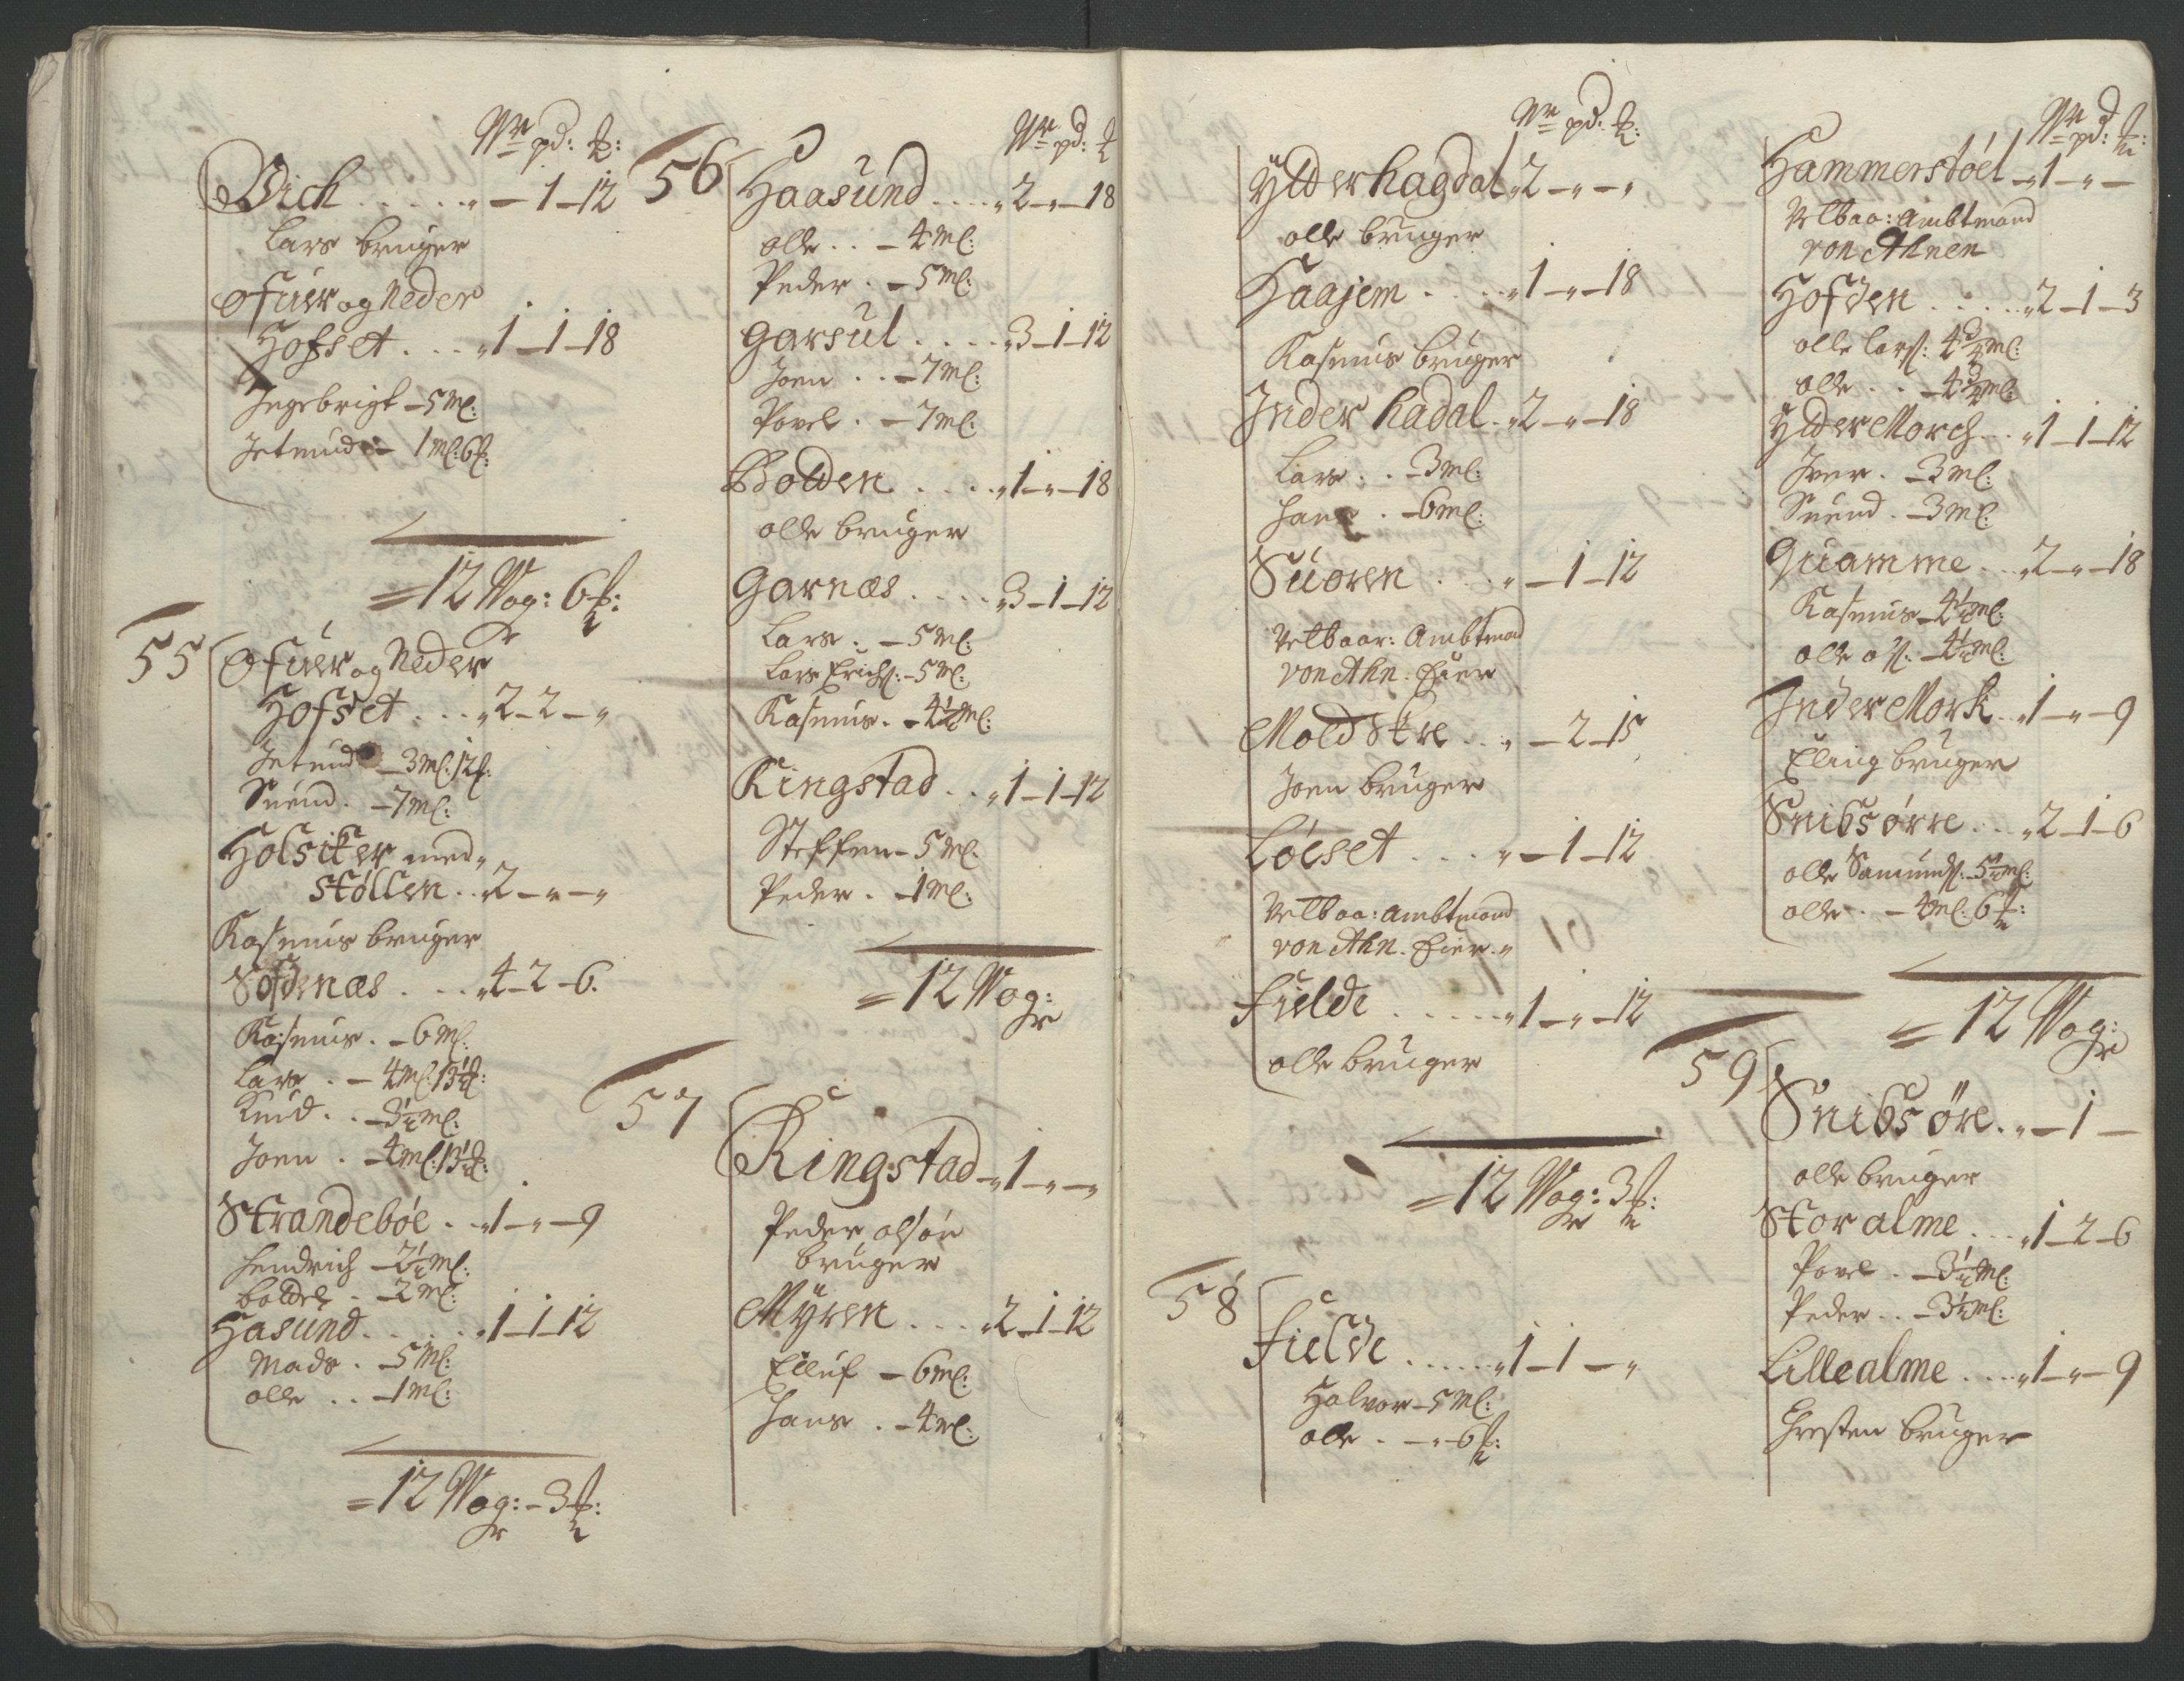 Wr pd: ℔:
Wich . . . . . „ – 1 – 12
Lars bruger
Ofuer og Neder
Hofset . . . „ 1 – 1 – 18
Ingebrigt – 5 Ml:
Jetmund – 1 Ml: 6 ℔:
= 12 Wog: 6 ℔:
55
Ofuer og Neder
Hofset . . . „ 2 – 2 – „
Jetmund – 3 Ml: 12 ℔:
Suend . – 7 Ml:
Holsiter med
Støllen . . „ 2 – „ – „
Rasmus bruger
Sofdenæs . . . „ 4 – 2 – 6.
Rasmus . – 6 Ml:
Lars . – 4 Ml: 13½ ℔:
Knud . . – 3½ Ml:
Joen . – 4 Ml: 13½ ℔:
Strandebøe . . „ 1 – „ – 9
Hendrich – 2½ Ml:
Boldel . – 2 Ml:
Hasund . . . . . „ 1 – 1 – 12
Mads . – 5 Ml:
Olle . . – 1 Ml:
= 12 Wog: – 3 ℔:
Wr pd: ℔
56
Haasund . . . . „ 2 – „ – 18
Olle . . – 4 Ml:
Peder . – 5 Ml:
Garsul . . . . „ 3 – 1 – 12
Joen . . – 7 Ml:
Povel . – 7 Ml:
Bolden . . . . „ 1 – „ – 18
Olle bruger
Garnæs . . . . „ 3 – 1 – 12
Lars . – 5 Ml:
Lars Erichs: – 5 Ml:
Rasmus . – 4½ Ml:
Ringstad . . „ 1 – 1 – 12
Steffen – 5 Ml:
Peder . – 1 Ml:
= 12 Wog:
57
Ringstad – „ 1 – „ – „
Peder olsøn
bruger
Mÿren . . . . „ 2 – 1 – 12
Elluf – 6 Ml:
Hans . – 4 Ml:
Wr pd: ℔:
Ÿtder hagdal „ 2 – „ – „
Olle bruger
Kaajem . . . . „ 1 – „ – 18
Rasmus bruger
Inder hadal . „ 2 – „ – 18
Lars . . – 3 Ml:
Hans . – 6 Ml:
Suoren . . . „ – 1 – 12
Velbaar: Ambtmand
von Ahn . Eier
Moldskre . . „ – 2 – 15
Joen bruger
Løeset . . . . „ – 1 – 12
Velbaa: Ambtmand
von Ahn . Eier . „
Fielde . . . . . . „ 1 – „ – 12
Olle bruger
= 12 Wog: 3 ℔:
58
Fielde . . . . . „ 1 – 1 – „
Halvor – 5 Ml:
Olle . – „ 6 ℔:
Wr pd: ℔:
Hammerstøel – „ 1 – „ –
Velbaa: Ambtmand
von Ahnen
Hofden . . . . . „ 2 – 1 – 3
Olle Lars: 4½ Ml:
Olle . . – 4½ Ml:
Ÿtder Morch . . „ 1 – 1 – 12
Iver . – 3 Ml:
Suend . – 3 Ml:
Quamme . . „ 2 – „ – 18
Rasmus – 4½ Ml:
Olle ols: – 4½ Ml:
Inder Mork . „ 1 – „ – 9
Eling bruger
Snibsørre . . . „ 2 – 1 – 6
Olle Samunds: – 5½ Ml:
Olle . – 4 Ml: 6 ℔:
= 12 Wog:
59
Snibsøre . „ – 1 –
Olle bruger
Storalme . . . „ 1 – 2 – 6
Povel . – 3½ Ml:
Peder . . – 3½ Ml:
Lillealme . . . . „ 1 – „ – 9
Chresten bruger